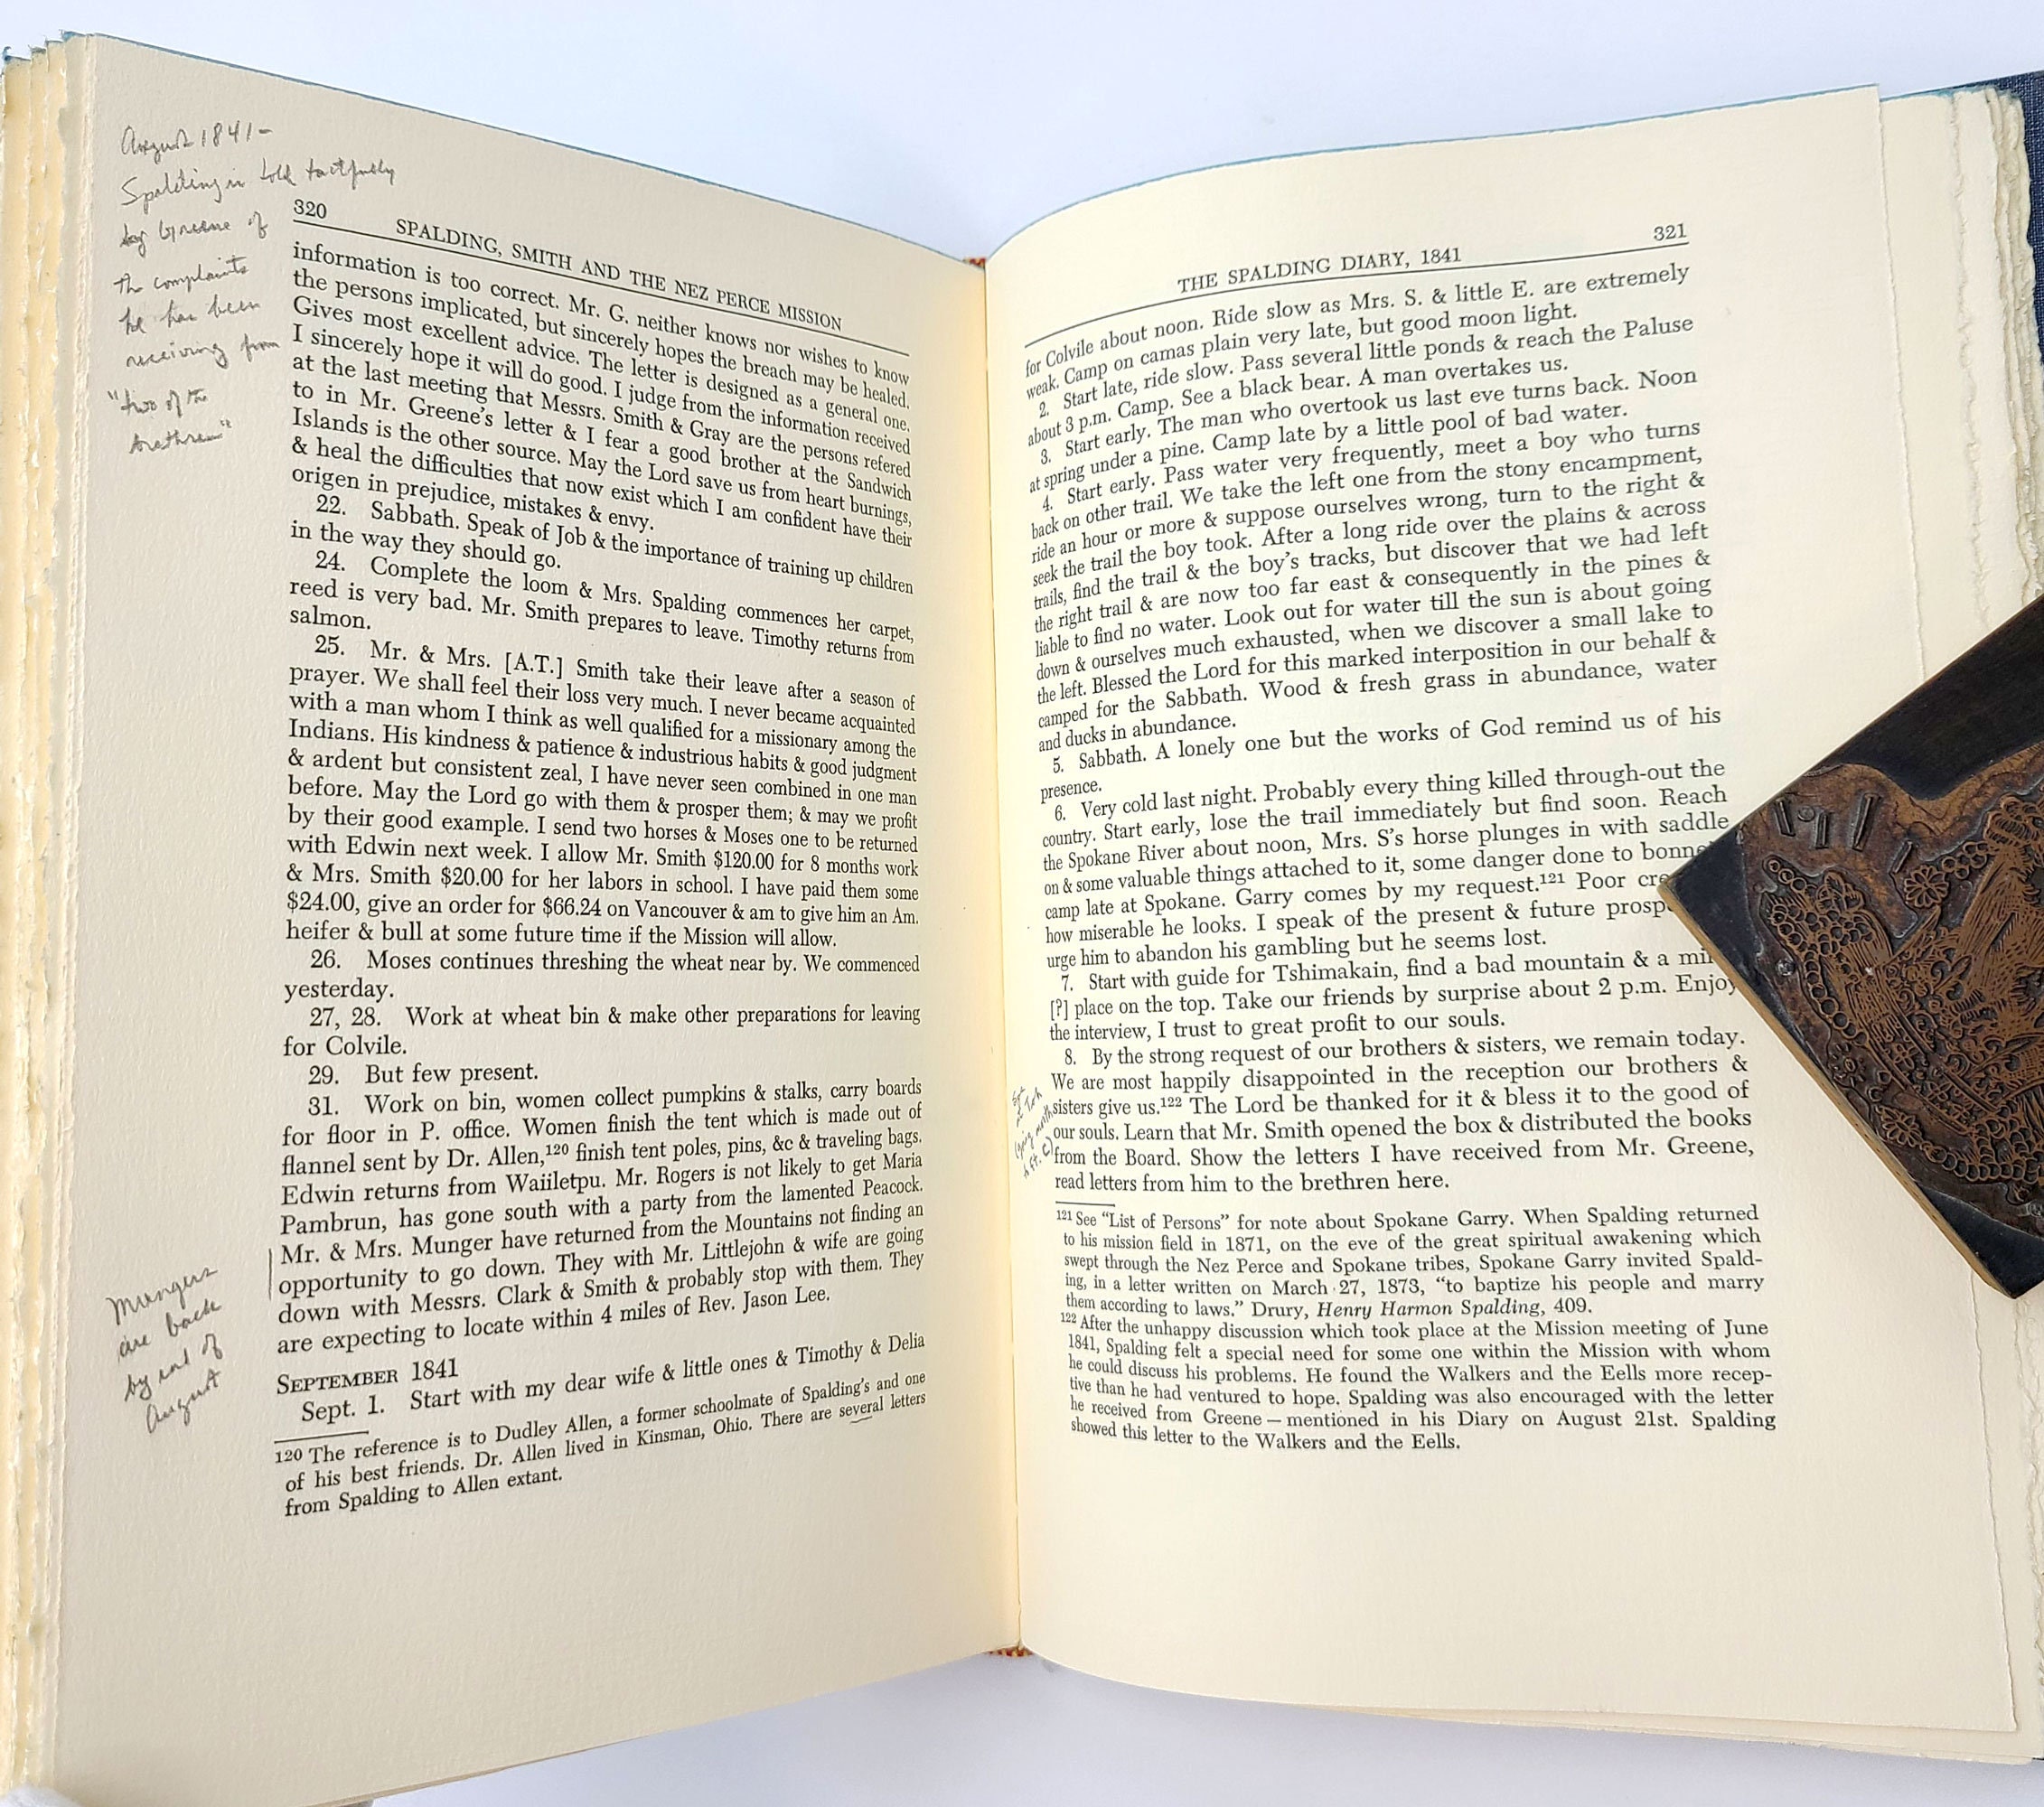 August 1841-
Spalding is told tactfully
by Greene of
the complaints
he has been
receiving from
"two of the
brethren"
320
SPALDING, SMITH AND THE NEZ PERCE MISSION
information is too correct. Mr. G. neither knows nor wishes to know
the persons implicated, but sincerely hopes the breach may be healed.
Gives most excellent advice. The letter is designed as a general one.
I sincerely hope it will do good. I judge from the information received
at the last meeting that Messrs. Smith & Gray are the persons refered
to in Mr. Greene's letter & I fear a good brother at the Sandwich
Islands is the other source. May the Lord save us from heart burnings,
& heal the difficulties that now exist which I am confident have their
origen in prejudice, mistakes & envy.
22. Sabbath. Speak of Job & the importance of training up children
in the way they should go.
24. Complete the loom & Mrs. Spalding commences her carpet,
reed is very bad. Mr. Smith prepares to leave. Timothy returns from
salmon.
25. Mr. & Mrs. [A.T.] Smith take their leave after a season of
prayer. We shall feel their loss very much. I never became acquainted
with a man whom I think as well qualified for a missionary among the
Indians. His kindness & patience & industrious habits & good judgment
& ardent but consistent zeal, I have never seen combined in one man
before. May the Lord go with them & prosper them; & may we profit
by their good example. I send two horses & Moses one to be returned
with Edwin next week. I allow Mr. Smith $120.00 for 8 months work
& Mrs. Smith $20.00 for her labors in school. I have paid them some
$24.00, give an order for $66.24 on Vancouver & am to give him an Am.
heifer & bull at some future time if the Mission will allow.
26. Moses continues threshing the wheat near by. We commenced
yesterday.
27, 28. Work at wheat bin & make other preparations for leaving
for Colvile.
29. But few present.
31. Work on bin, women collect pumpkins & stalks, carry boards
for floor in P. office. Women finish the tent which is made out of
flannel sent by Dr. Allen,120 finish tent poles, pins, &c & traveling bags.
Edwin returns from Waiiletpu. Mr. Rogers is not likely to get Maria
Pambrun, has gone south with a party from the lamented Peacock.
Mr. & Mrs. Munger have returned from the Mountains not finding an
opportunity to go down. They with Mr. Littlejohn & wife are going
down with Messrs. Clark & Smith & probably stop with them. They
are expecting to locate within 4 miles of Rev. Jason Lee.
Mungers
are back
by end of
August
SEPTEMBER 1841
Sept. 1. Start with my dear wife & little ones & Timothy & Delia
120 The reference is to Dudley Allen, a former schoolmate of Spalding's and one
of his best friends. Dr. Allen lived in Kinsman, Ohio. There are several letters
from Spalding to Allen extant.
THE SPALDING DIARY, 1841
321
for Colvile about noon. Ride slow as Mrs. S. & little E. are extremely
weak. Camp on camas plain very late, but good moon light.
2. Start late, ride slow. Pass several little ponds & reach the Paluse
about 3 p.m. Camp. See a black bear. A man overtakes us.
3. Start early. The man who overtook us last eve turns back. Noon
at spring under a pine. Camp late by a little pool of bad water.
4. Start early. Pass water very frequently, meet a boy who turns
back on other trail. We take the left one from the stony encampment,
ride an hour or more & suppose ourselves wrong, turn to the right &
seek the trail the boy took. After a long ride over the plains & across
trails, find the trail & the boy's tracks, but discover that we had left
the right trail & are now too far east & consequently in the pines &
liable to find no water. Look out for water till the sun is about going
down & ourselves much exhausted, when we discover a small lake to
the left. Blessed the Lord for this marked interposition in our behalf &
camped for the Sabbath. Wood & fresh grass in abundance, water
and ducks in abundance.
5. Sabbath. A lonely one but the works of God remind us of his
presence.
6. Very cold last night. Probably every thing killed through-out the
country. Start early, lose the trail immediately but find soon. Reach
the Spokane River about noon, Mrs. S's horse plunges in with saddle
on & some valuable things attached to it, some danger done to
camp late at Spokane. Garry comes by my request.121 Poor
how miserable he looks. I speak of the present & future
urge him to abandon his gambling but he seems lost.
7. Start with guide for Tshimakain, find a bad mountain & a
[?] place on the top. Take our friends by surprise about 2 p.m. Enjoy
the interview, I trust to great profit to our souls.
8. By the strong request of our brothers & sisters, we remain today.
We are most happily disappointed in the reception our brothers &
sisters give us.122 The Lord be thanked for it & bless it to the good of
our souls. Learn that Mr. Smith opened the box & distributed the books
from the Board. Show the letters I have received from Mr. Greene,
read letters from him to the brethren here.
121 See "List of Persons" for note about Spokane Garry. When Spalding returned
to his mission field in 1871, on the eve of the great spiritual awakening which
swept through the Nez Perce and Spokane tribes, Spokane Garry invited Spald-
ing, in a letter written on March 27, 1873, "to baptize his people and marry
them according to laws." Drury, Henry Harmon Spalding, 409.
122 After the unhappy discussion which took place at the Mission meeting of June
1841, Spalding felt a special need for some one within the Mission with whom
he could discuss his problems. He found the Walkers and the Eells more recep-
tive than he had ventured to hope. Spalding was also encouraged with the letter
he received from Greene — mentioned in his Diary on August 21st. Spalding
showed this letter to the Walkers and the Eells.